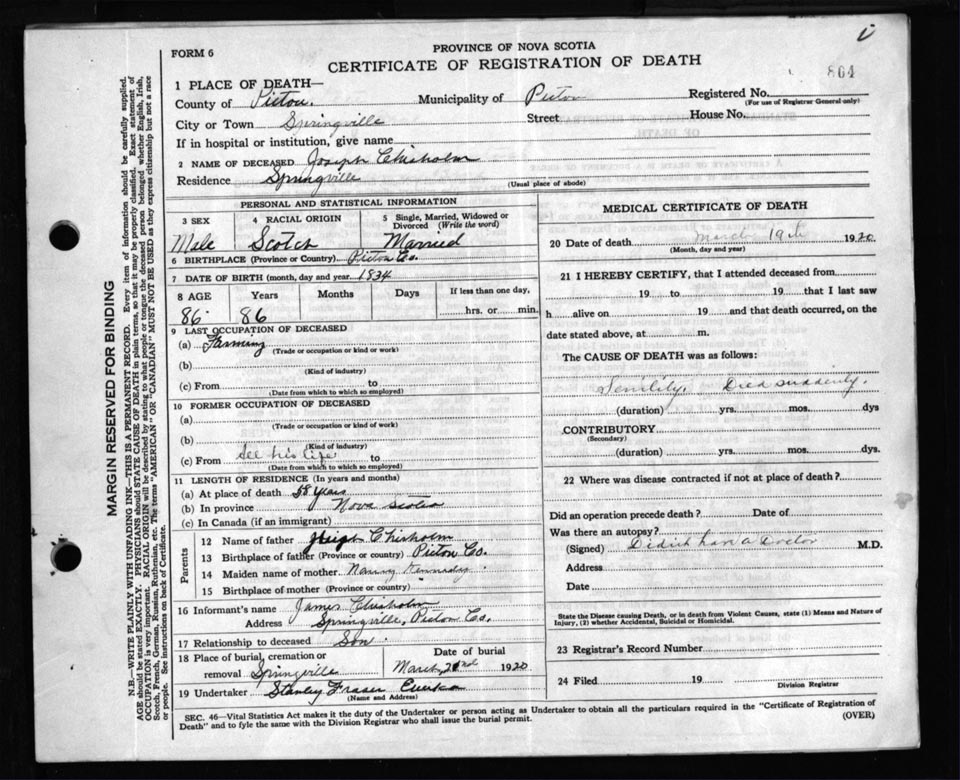 i
FORM 6
PROVINCE OF NOVA SCOTIA
CERTIFICATE OF REGISTRATION OF DEATH
864
1 PLACE OF DEATH—
County of Pictou. Municipality of Pictou Registered No.
(For use of Registrar General only)
City or Town Springville Street House No.
If in hospital or institution, give name
2 NAME OF DECEASED Joseph Chisholm
Residence Springville
(Usual place of abode)
PERSONAL AND STATISTICAL INFORMATION
3 SEX 4 RACIAL ORIGIN 5 Single, Married, Widowed or
Divorced (Write the word)
Male Scotch Married
6 BIRTHPLACE (Province or Country) Pictou Co.
7 DATE OF BIRTH (month, day and year. 1834
8 AGE Years Months Days If less than one day,
86 86 hrs. or min.
9 LAST OCCUPATION OF DECEASED
(a) Farming
(Trade or occupation or kind or work)
(b)
(Kind of industry)
(c) From to
(Date from which to which so employed)
10 FORMER OCCUPATION OF DECEASED
(a)
(Trade or occupation or kind of work)
(b)
(Kind of industry)
(c) From his life to
(Date from which to which so employed)
11 LENGTH OF RESIDENCE (In years and months)
(a) At place of death 58 years
(b) In province Nova Scotia
(c) In Canada (if an immigrant)
Parents
12 Name of father Hugh Chisholm
13 Birthplace of father (Province or country) Pictou Co.
14 Maiden name of mother Nancy Kennedy
15 Birthplace of mother (Province or country)
16 Informant's name James Chisholm
Address Springville, Pictou Co.
17 Relationship to deceased Son
18 Place of burial, cremation or Date of burial
removal Springville March, 1920
19 Undertaker Stanley Fraser Eureka
(Name and Address)
MEDICAL CERTIFICATE OF DEATH
20 Date of death March 19th 1920
(Month, day and year)
21 I HEREBY CERTIFY, that I attended deceased from
19 to 19 that I last saw
h alive on 19 and that death occurred, on the
date stated above, at m.
The CAUSE OF DEATH was as follows:
Senility. Died suddenly.
(duration) yrs. mos. dys
CONTRIBUTORY
(Secondary)
(duration) yrs. mos. dys.
22 Where was disease contracted if not at place of death?
Did an operation precede death? Date of
Was there an autopsy?
(Signed) Didnt have a Doctor M.D.
Address
Date
State the Disease causing Death, or in death from Violent Causes, state (1) Means and Nature of
Injury, (2) whether Accidental, Suicidal or Homicidal.
23 Registrar's Record Number
24 Filed 19
Division Registrar
SEC. 46—Vital Statistics Act makes it the duty of the Undertaker or person acting as Undertaker to obtain all the particulars required in the "Certificate of Registration of
Death" and to fyle the same with the Division Registrar who shall issue the burial permit.
(OVER)
MARGIN RESERVED FOR BINDING
N.B.—WRITE PLAINLY WITH UNFADING INK—THIS IS A PERMANENT RECORD. Every item of information should be carefully supplied.
AGE should be stated EXACTLY. PHYSICIANS should STATE CAUSE OF DEATH in plain terms, so that it may be properly classified. Exact statement of
OCCUPATION is very important. RACIAL ORIGIN will be described by stating to what people or tongue the deceased person belonged whether English, Irish,
Scotch, French, German, Russian, Ruthenian, etc. The terms "AMERICAN" OR "CANADIAN" MUST NOT BE USED as they express citizenship but not a race
or people. See instructions on back of Certificate.